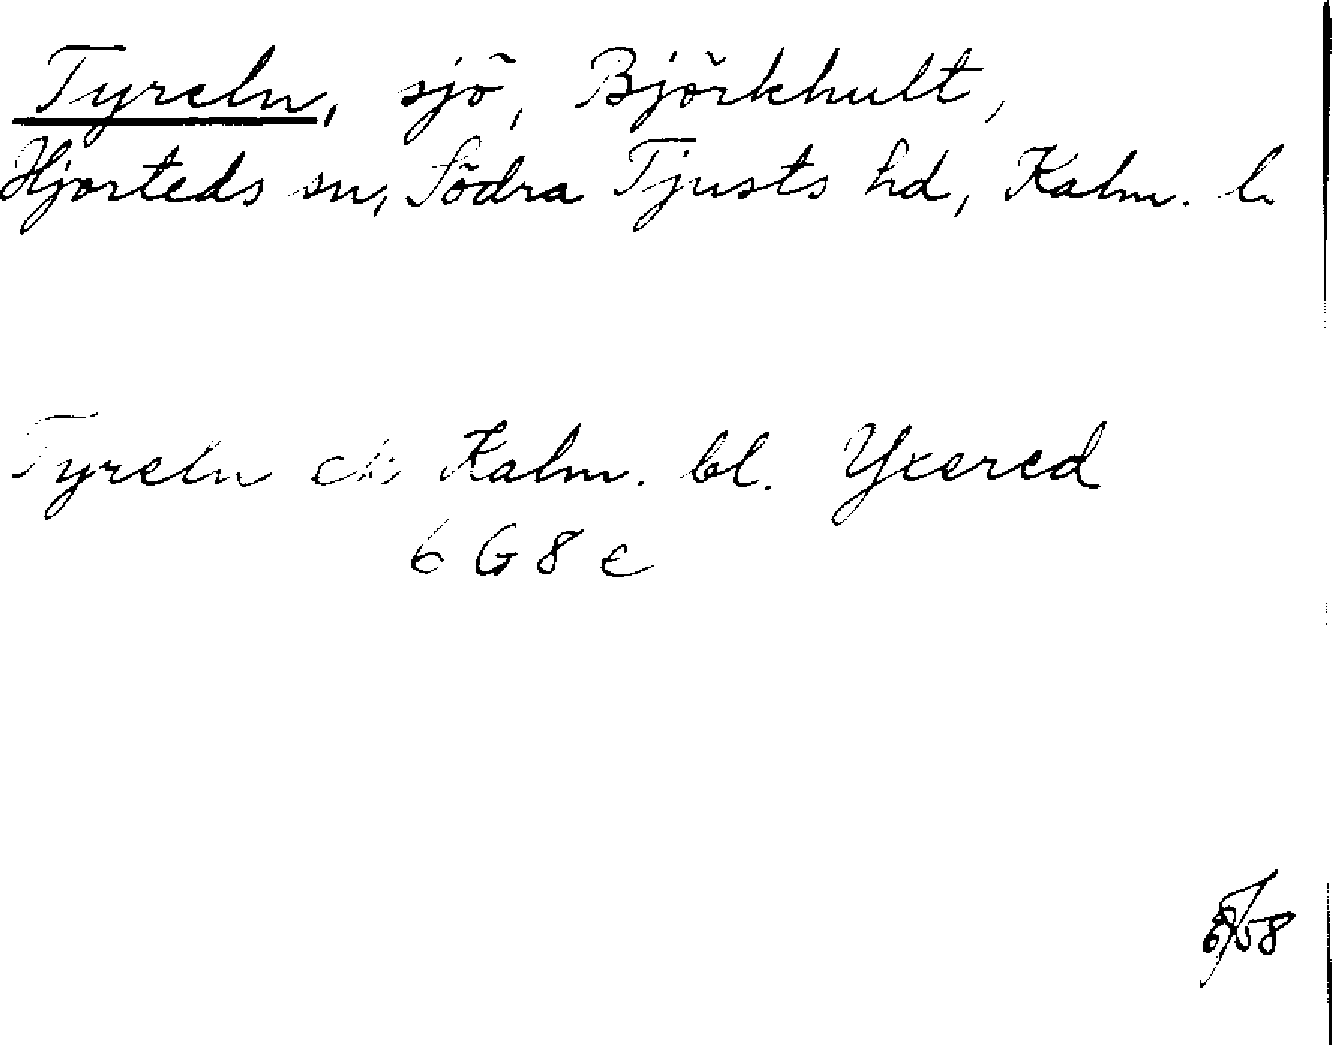 Tyreln, sjö, Björkhult,
Hjorteds sn, Södra Tjusts hd, Kalm. l.
Tyreln ek Kalm. bl. Yxered
6 G 8 e